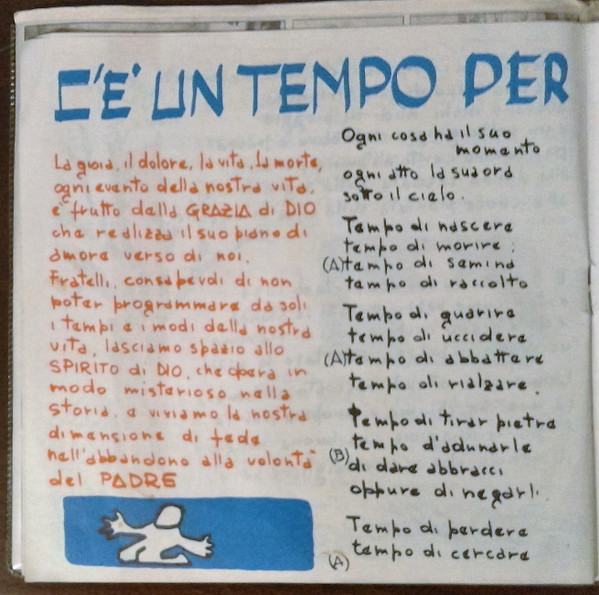 C'E' UN TEMPO PER
La gioia, il dolore, la vita, la morte,
ogni evento della nostra vita,
e' frutto della GRAZIA di DIO
che realizza il suo piano di
amore verso di noi.
Fratelli, consapevoli di non
poter programmare da soli
i tempi e i modi della nostra
vita, lasciamo spazio allo
SPIRITO di DIO, che opera in
modo misterioso nella
storia, e viviamo la nostra
dimensione di fede
nell'abbandono alla volontà
del PADRE
Ogni cosa ha il suo
momento
ogni atto la sua ora
sotto il cielo.
Tempo di nascere
tempo di morire;
(A) tempo di semina
tempo di raccolto
Tempo di guarire
tempo di uccidere
(A) tempo di abbattere
tempo di rialzare.
Tempo di tirar pietre
tempo d'adunarle
(B) di dare abbracci
oppure di negarli.
Tempo di perdere
tempo di cercare
(A)